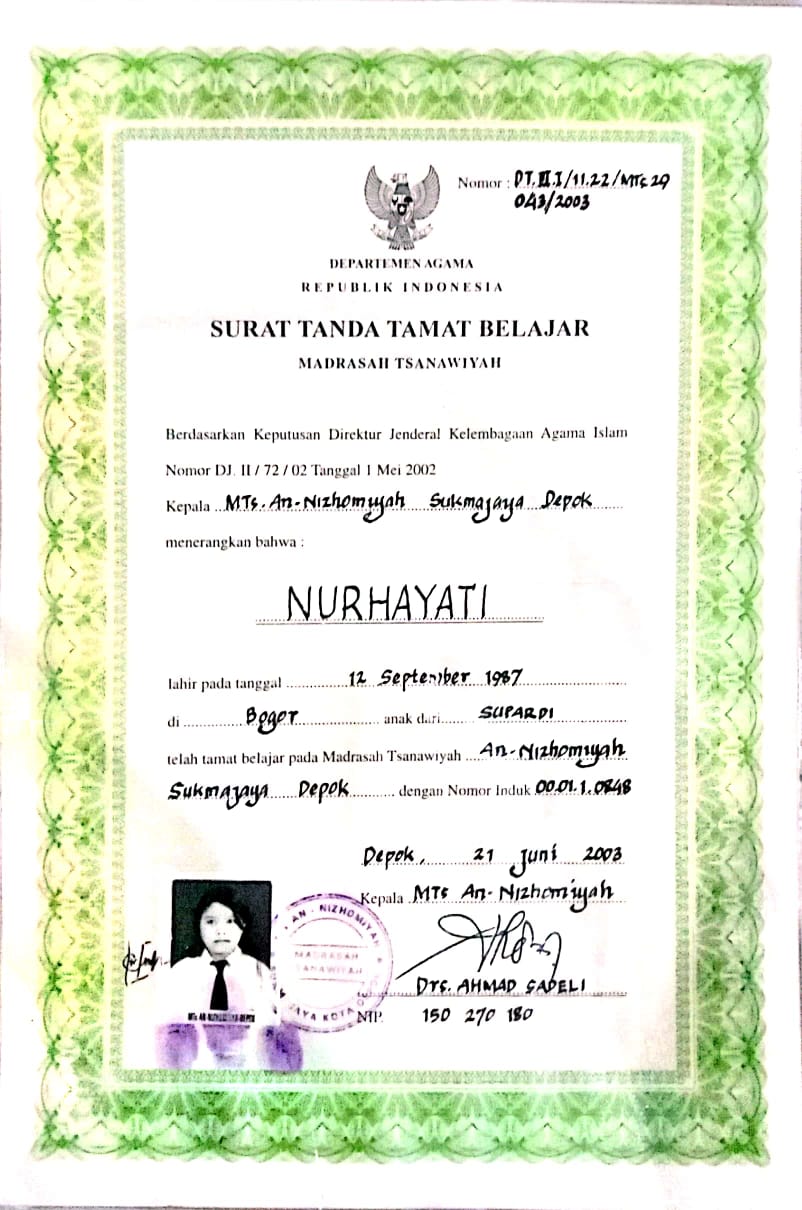 Nomor : DT.III.I/11.22/MTs 29
043/2003
DEPARTEMEN AGAMA
REPUBLIK INDONESIA
SURAT TANDA TAMAT BELAJAR
MADRASAH TSANAWIYAH
Berdasarkan Keputusan Direktur Jenderal Kelembagaan Agama Islam
Nomor DJ. II / 72 / 02 Tanggal 1 Mei 2002
Kepala MTs. An-Nizhomiyah Sukmajaya Depok
menerangkan bahwa :
NURHAYATI
lahir pada tanggal 12 September 1987
di Bogor anak dari SUPARDI
telah tamat belajar pada Madrasah Tsanawiyah An-Nizhomiyah
Sukmajaya Depok dengan Nomor Induk 00.01.1.0848
Depok, 21 Juni 2003
Kepala MTs An-Nizhomiyah
AN - NIZHOMIYAH
MADRASAH
TSANAWIYAH
JAYA KOTA
Drs. AHMAD SADELI
NIP. 150 270 180